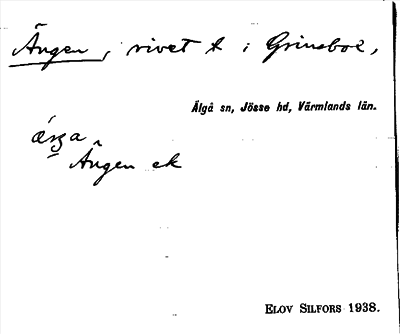 Ängen, rivet t i Grinsbol,
Älgå sn, Jösse hd, Värmlands län.
Ängen ek
ELOV SILFORS 1938.